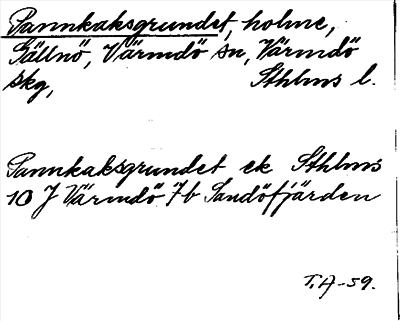 Pannkaksgrundet, holme,
Gällnö, Värmdö sn, Värmdö
skg, Sthlms l.
Pannkaksgrundet ek Sthlms
10 J Värmdö 7b Sandöfjärden
T.A-59.